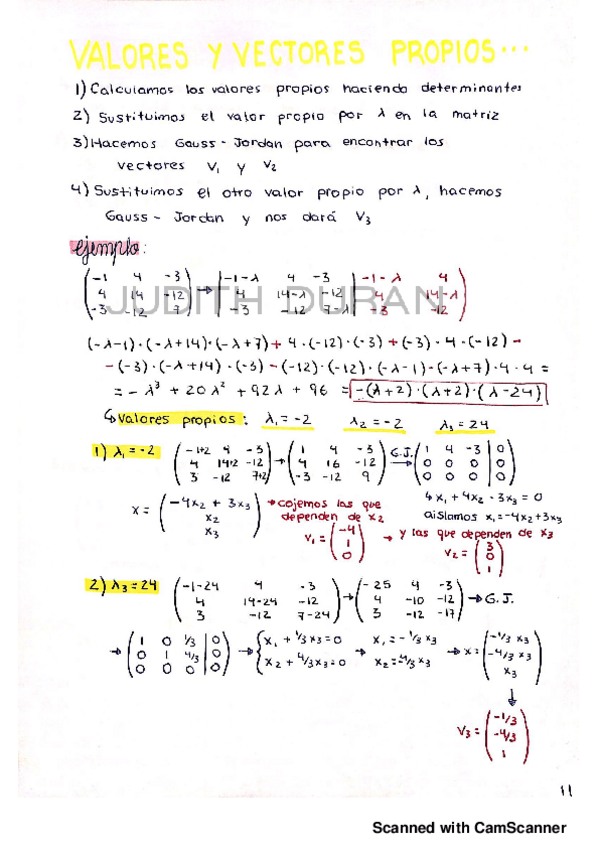 VALORES Y VECTORES PROPIOS...
1) Calculamos los valores propios haciendo determinantes
2) Sustituimos el valor propio por λ en la matriz
3) Hacemos Gauss - Jordan para encontrar los
vectores V₁ y V₂
4) Sustituimos el otro valor propio por λ, hacemos
Gauss - Jordan y nos dará V₃
ejemplo:
(-1 4 -3) |-1-λ 4 -3| -1-λ 4
(4 14 -12) → |4 14-λ -12| 4 14-λ
(-3 -12 7) |-3 -12 7-λ| -3 -12
JUDITH DURAN
(-λ-1)·(-λ+14)·(-λ+7) + 4·(-12)·(-3) + (-3)·4·(-12) -
-(-3)·(-λ+14)·(-3) - (-12)·(-12)·(-λ-1) - (-λ+7)·4·4 =
= -λ³ + 20λ² + 92λ + 96 = -(λ+2)·(λ+2)·(λ-24)
↳ valores propios: λ₁ = -2 λ₂ = -2 λ₃ = 24
1) λ₁ = -2
(-1+2 4 -3) (1 4 -3) G.J. (1 4 -3 | 0)
(4 14+2 -12) → (4 16 -12) → (0 0 0 | 0)
(3 -12 7+2) (-3 -12 9) (0 0 0 | 0)
x = (-4x₂ + 3x₃
x₂
x₃)
→ cojemos las que
dependen de x₂
V₁ = (-4
1
0)
4x₁ + 4x₂ - 3x₃ = 0
aislamos x₁ = -4x₂+3x₃
→ y las que dependen de x₃
V₂ = (3
0
1)
2) λ₃ = 24
(-1-24 4 -3) (-25 4 -3)
(4 14-24 -12) → (4 -10 -12) → G.J.
(3 -12 7-24) (3 -12 -17)
→ (1 0 1/3 | 0) → {x₁ + 1/3 x₃ = 0 x₁ = -1/3 x₃ (-1/3 x₃)
(0 1 4/3 | 0) {x₂ + 4/3 x₃ = 0 → x₂ = -4/3 x₃ → x = (-4/3 x₃)
(0 0 0 | 0) (x₃)
↓
V₃ = (-1/3
-4/3
1)
11
Scanned with CamScanner